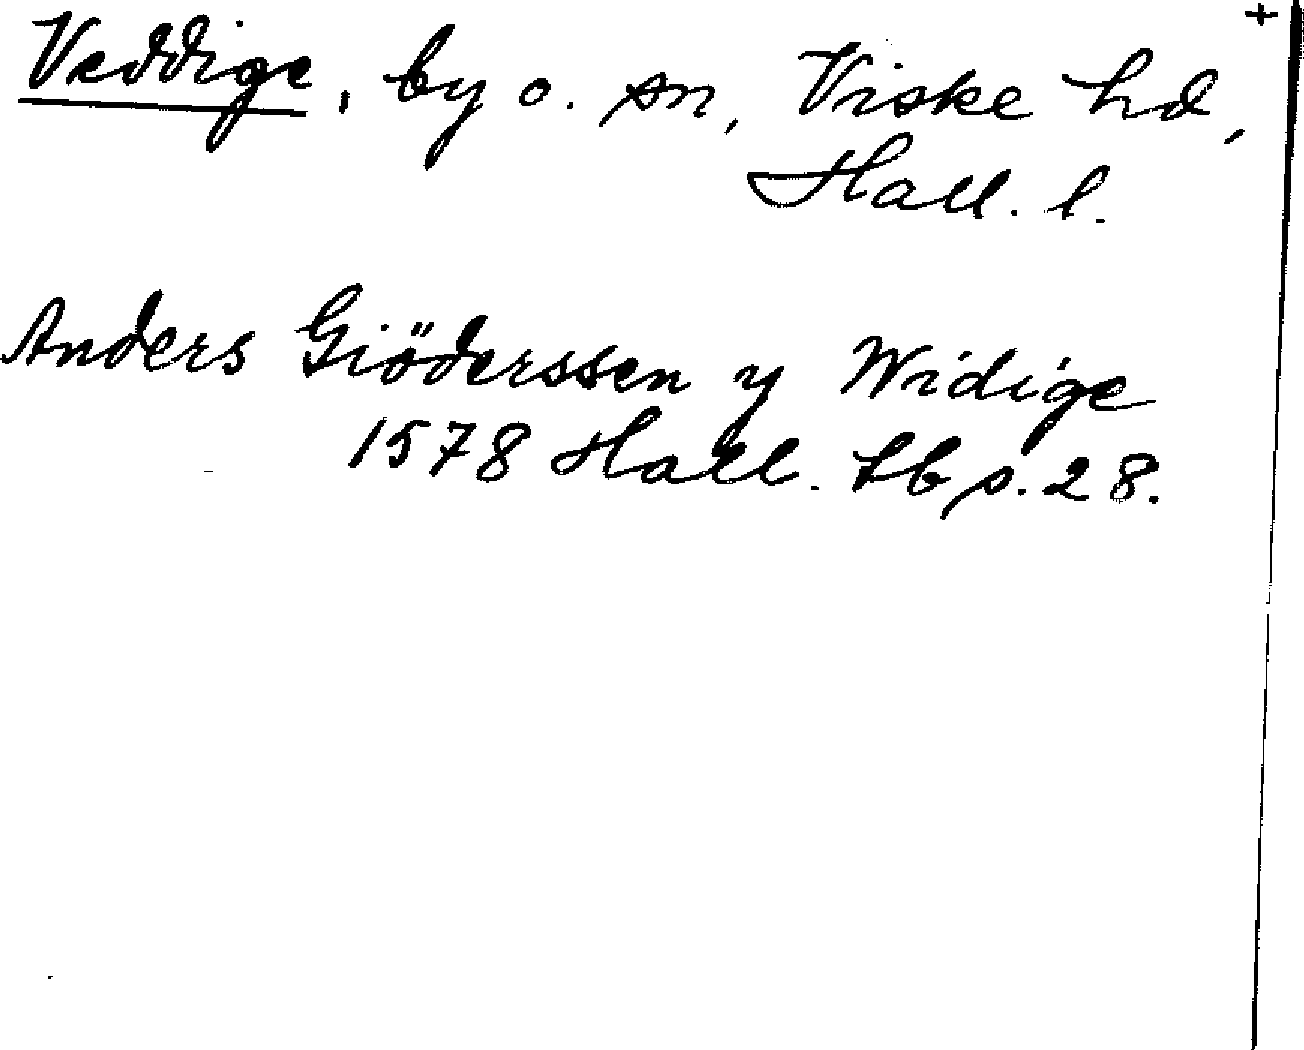 +
Veddige, by o. sn, Viske hd,
Hall. l.
Anders Giöderssen y Widige
1578 Hall. Lb s. 28.